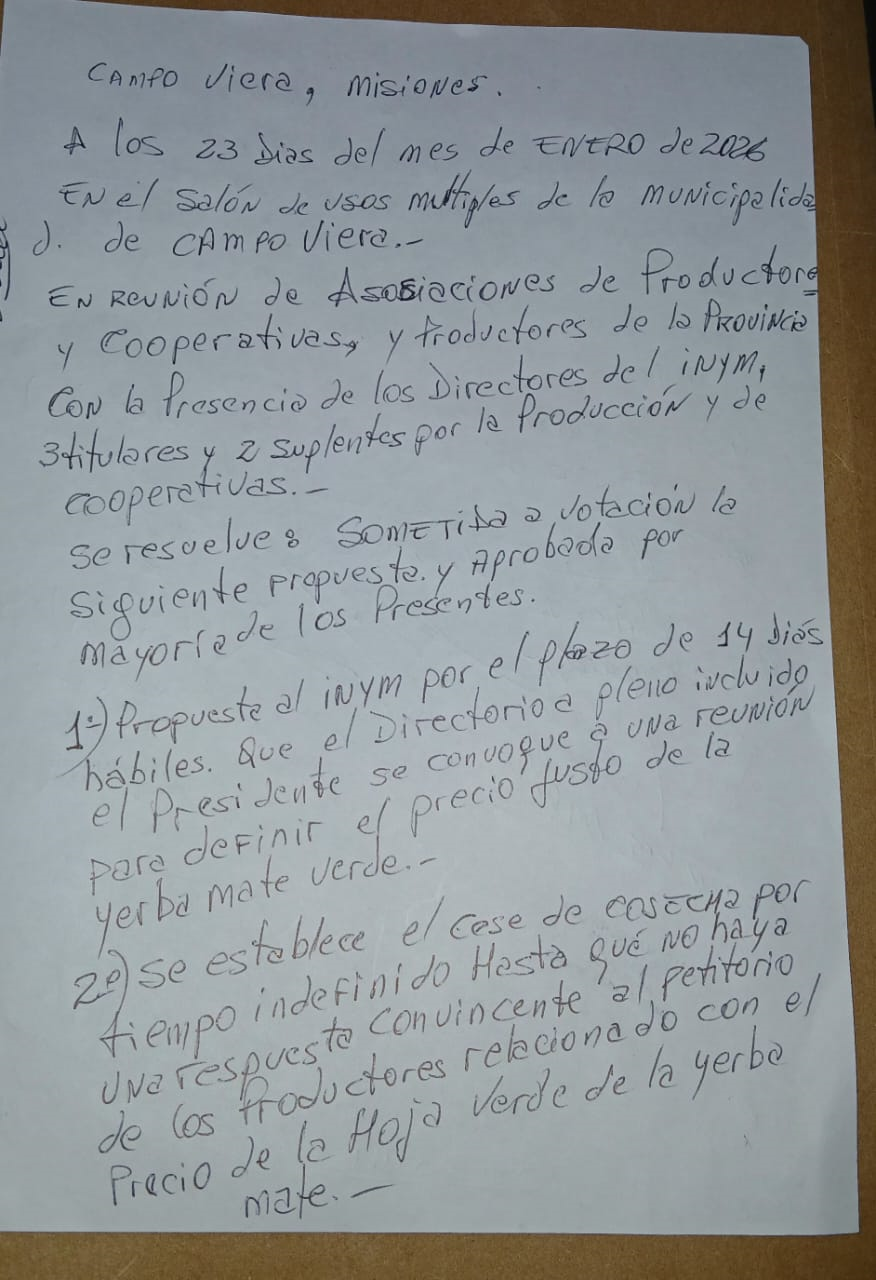 CAMPO Viera, Misiones.
A los 23 Dias del mes de ENERO de 2026
EN el Salón de usos multiples de la Municipalida
d. de CAMPO Viera.-
EN REUNIÓN de Asosiaciones de Productores
y Cooperativas, y Productores de la Provincia
CON la Presencia de los Directores del INYM,
3 titulares y 2 suplentes por la Producción y de
cooperativas.-
se resuelve: SOMETIDA a votación la
siguiente propuesta. y Aprobada por
mayoría de los Presentes.
1º) Propuesta al INYM por el plazo de 14 Dias
hábiles. Que el Directorio a pleno incluido
el Presidente se convoque a UNA reUNIÓN
para deFinir el precio justo de la
yerba mate verde.-
2º) Se establece el cese de COSECHA por
tiempo indeFinido Hasta qué NO haya
UNA respuesta convincente al petitorio
de los Productores relacionado con el
Precio de la Hoja verde de la yerba
mate.-